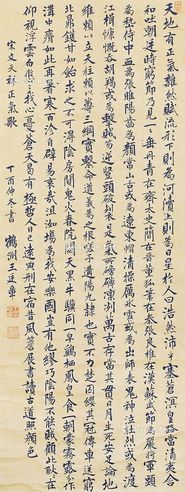 天地有正氣雜然賦流形下則為河嶽上則為日星於人曰浩然沛乎塞蒼冥皇路當清夷含
和吐明庭時窮節乃見一一垂丹青在齊太史簡在晉董狐筆在秦張良椎在漢蘇武節為嚴將軍頭
為嵇侍中血為張睢陽齒為顏常山舌或為遼東帽清操厲冰雪或為出師表鬼神泣壯烈或為渡
江楫慷慨吞胡羯或為擊賊笏逆豎頭破裂是氣所磅礴凜冽萬古存當其貫日月生死安足論地
維賴以立天柱賴以尊三綱實繫命道義為之根嗟予遘陽九隸也實不力楚囚纓其冠傳車送窮
北鼎鑊甘如飴求之不可得陰房闃鬼火春院閟天黑牛驥同一皂雞棲鳳凰食一朝蒙霧露分作
溝中瘠如此再寒暑百沴自辟易哀哉沮洳場為我安樂國豈有他繆巧陰陽不能賊顧此耿耿在
仰視浮雲白悠悠我心憂倉天曷有極哲人日已遠典刑在宿昔風簷展書讀古道照顏色
宋文天祥正氣歌
丁酉仲冬書
鶴洲王廷